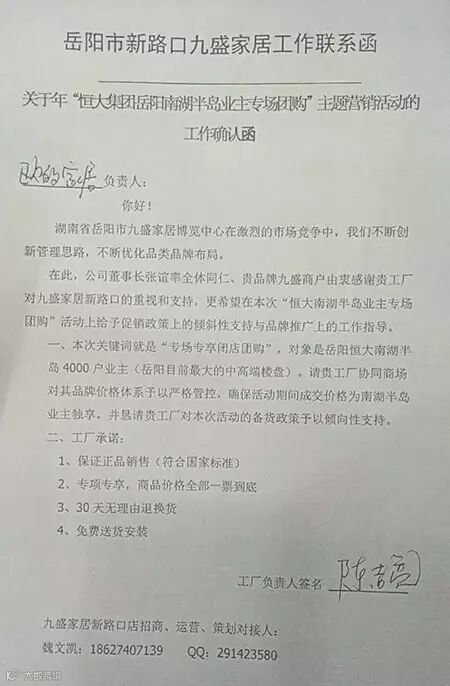 岳阳市新路口九盛家居工作联系函
关于年“恒大集团岳阳南湖半岛业主专场团购”主题营销活动的
工作确认函
负责人：
你好！
湖南省岳阳市九盛家居博览中心在激烈的市场竞争中，我们不断创
新管理思路，不断优化品类品牌布局。
在此，公司董事长张谊率全体同仁、贵品牌九盛商户由衷感谢贵工厂
对九盛家居新路口的重视和支持，更希望在本次“恒大南湖半岛业主专场
团购”活动上给予促销政策上的倾斜性支持与品牌推广上的工作指导。
一、本次关键词就是“专场专享闭店团购”，对象是岳阳恒大南湖半
岛 4000 户业主（岳阳目前最大的中高端楼盘）。请贵工厂协同商场
对其品牌价格体系予以严格管控，确保活动期间成交价格为南湖半岛
业主独享。并恳请贵工厂对本次活动的备货政策予以倾向性支持。
二、工厂承诺：
1、保证正品销售（符合国家标准）
2、专项专享，商品价格全部一票到底
3、30 天无理由退换货
4、免费送货安装
工厂负责人签名
九盛家居新路口店招商、运营、策划对接人：
魏文凯：18627407139 QQ：291423580